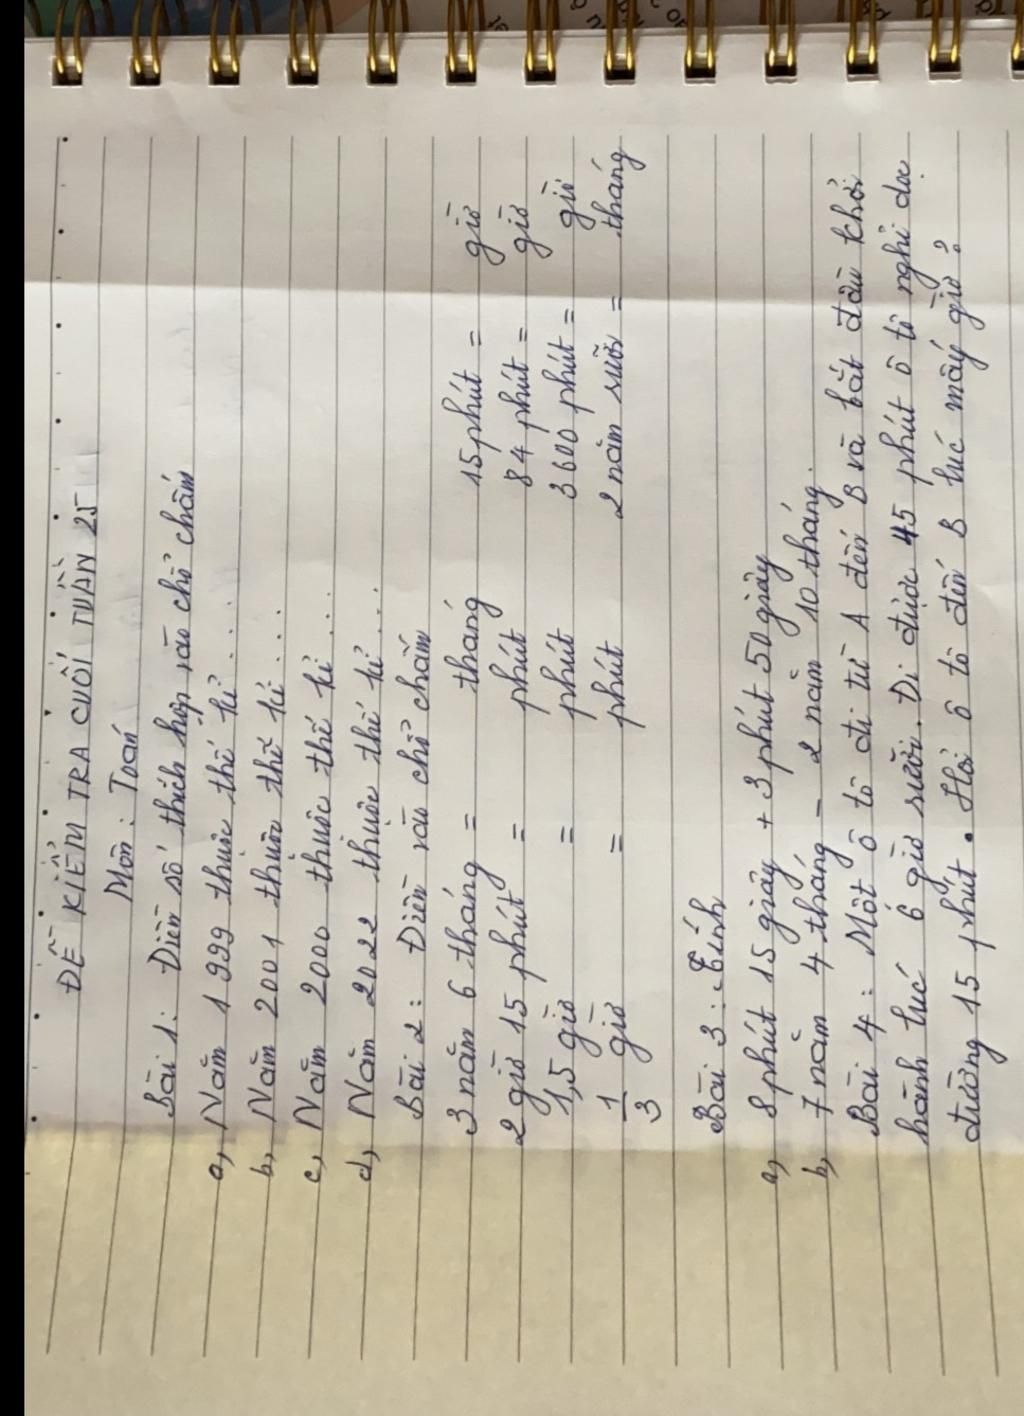 ĐỀ KIỂM TRA CUỐI TUẦN 25
Môn : Toán
Bài 1: Điền số thích hợp vào chỗ chấm
a, Năm 1999 thuộc thế kỉ ...
b, Năm 2001 thuộc thế kỉ ...
c, Năm 2000 thuộc thế kỉ ...
d, Năm 2022 thuộc thế kỉ ...
Bài 2: Điền vào chỗ chấm
3 năm 6 tháng = tháng 15 phút = giờ
2 giờ 15 phút = phút 84 phút = giờ
1,5 giờ = phút 3600 phút = giờ
1/3 giờ = phút 2 năm rưỡi = tháng
Bài 3: Tính
a, 8 phút 15 giây + 3 phút 50 giây
b, 7 năm 4 tháng - 2 năm 10 tháng.
Bài 4: Một ô tô đi từ A đến B và bắt đầu khởi
hành lúc 6 giờ rưỡi. Đi được 45 phút ô tô nghỉ dọc
đường 15 phút. Hỏi ô tô đến B lúc mấy giờ?